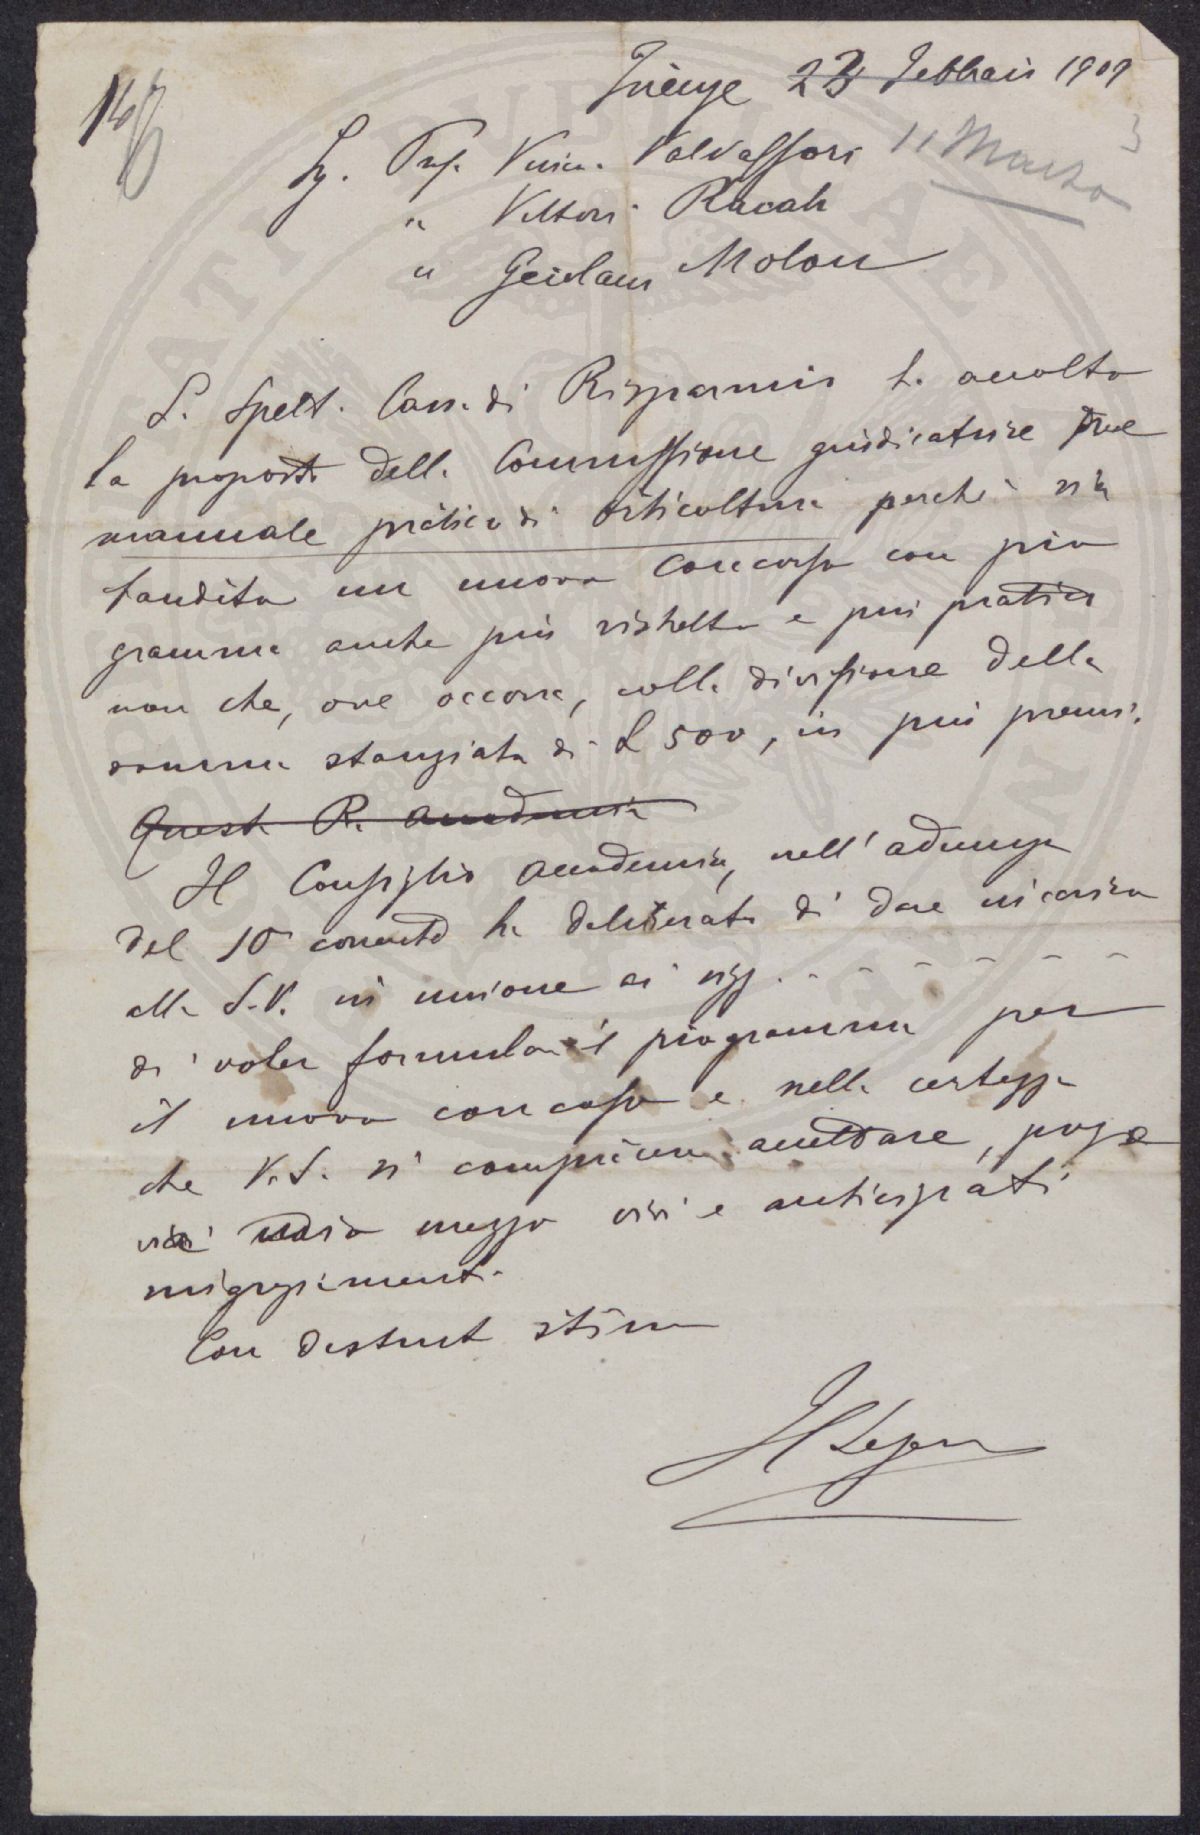 146
Firenze 23 Febbraio 1909
11 Marzo
Sig. Prof. Vinic. Valvassori
" Vittori Racah
" Girolam Molon
L. Spett. Cassa di Risparmio h. accolto
la proposta dell. Commissione giudicatrice
manuale pratico di Orticoltura perché sia
bandito un nuovo Concorso con pro
gramma anche più ristretto e più pratico
non che, ove occorra, colla divisione della
somma stanziata di L 500, in più premi.
Quest R. Accademia
Il Consiglio Accademia, nell'adunanza
del 10 corrente ha deliberato di dare incarico
alla S.V. in unione ai sigg. - - - - - -
di voler formulare il programma per
il nuovo concorso e nella certezza
che V.S. si compiacerà accettare, porgo
mezzo vivi e anticipati
ringraziamenti.
Con distint stima
Il Segr